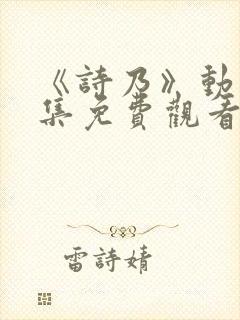 《詩乃》動
集免費觀看
雷詩婧